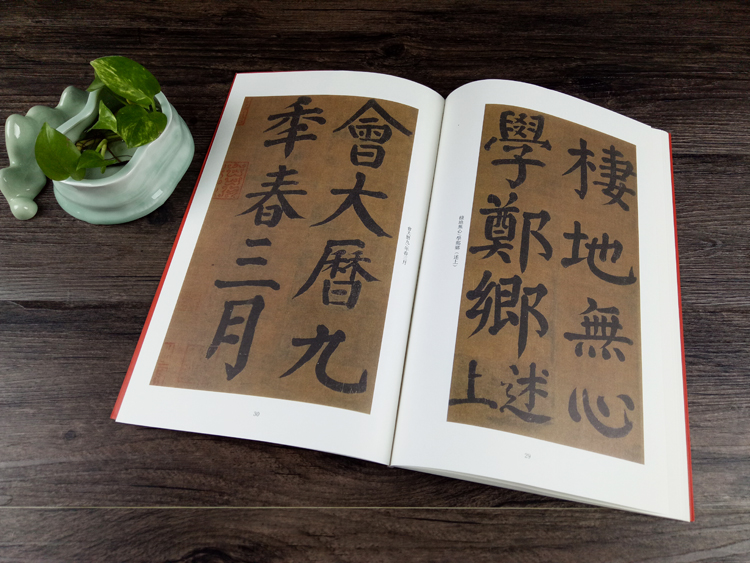 棲地無心
學鄭鄉述
上
29
會大曆九
秊春三月
30